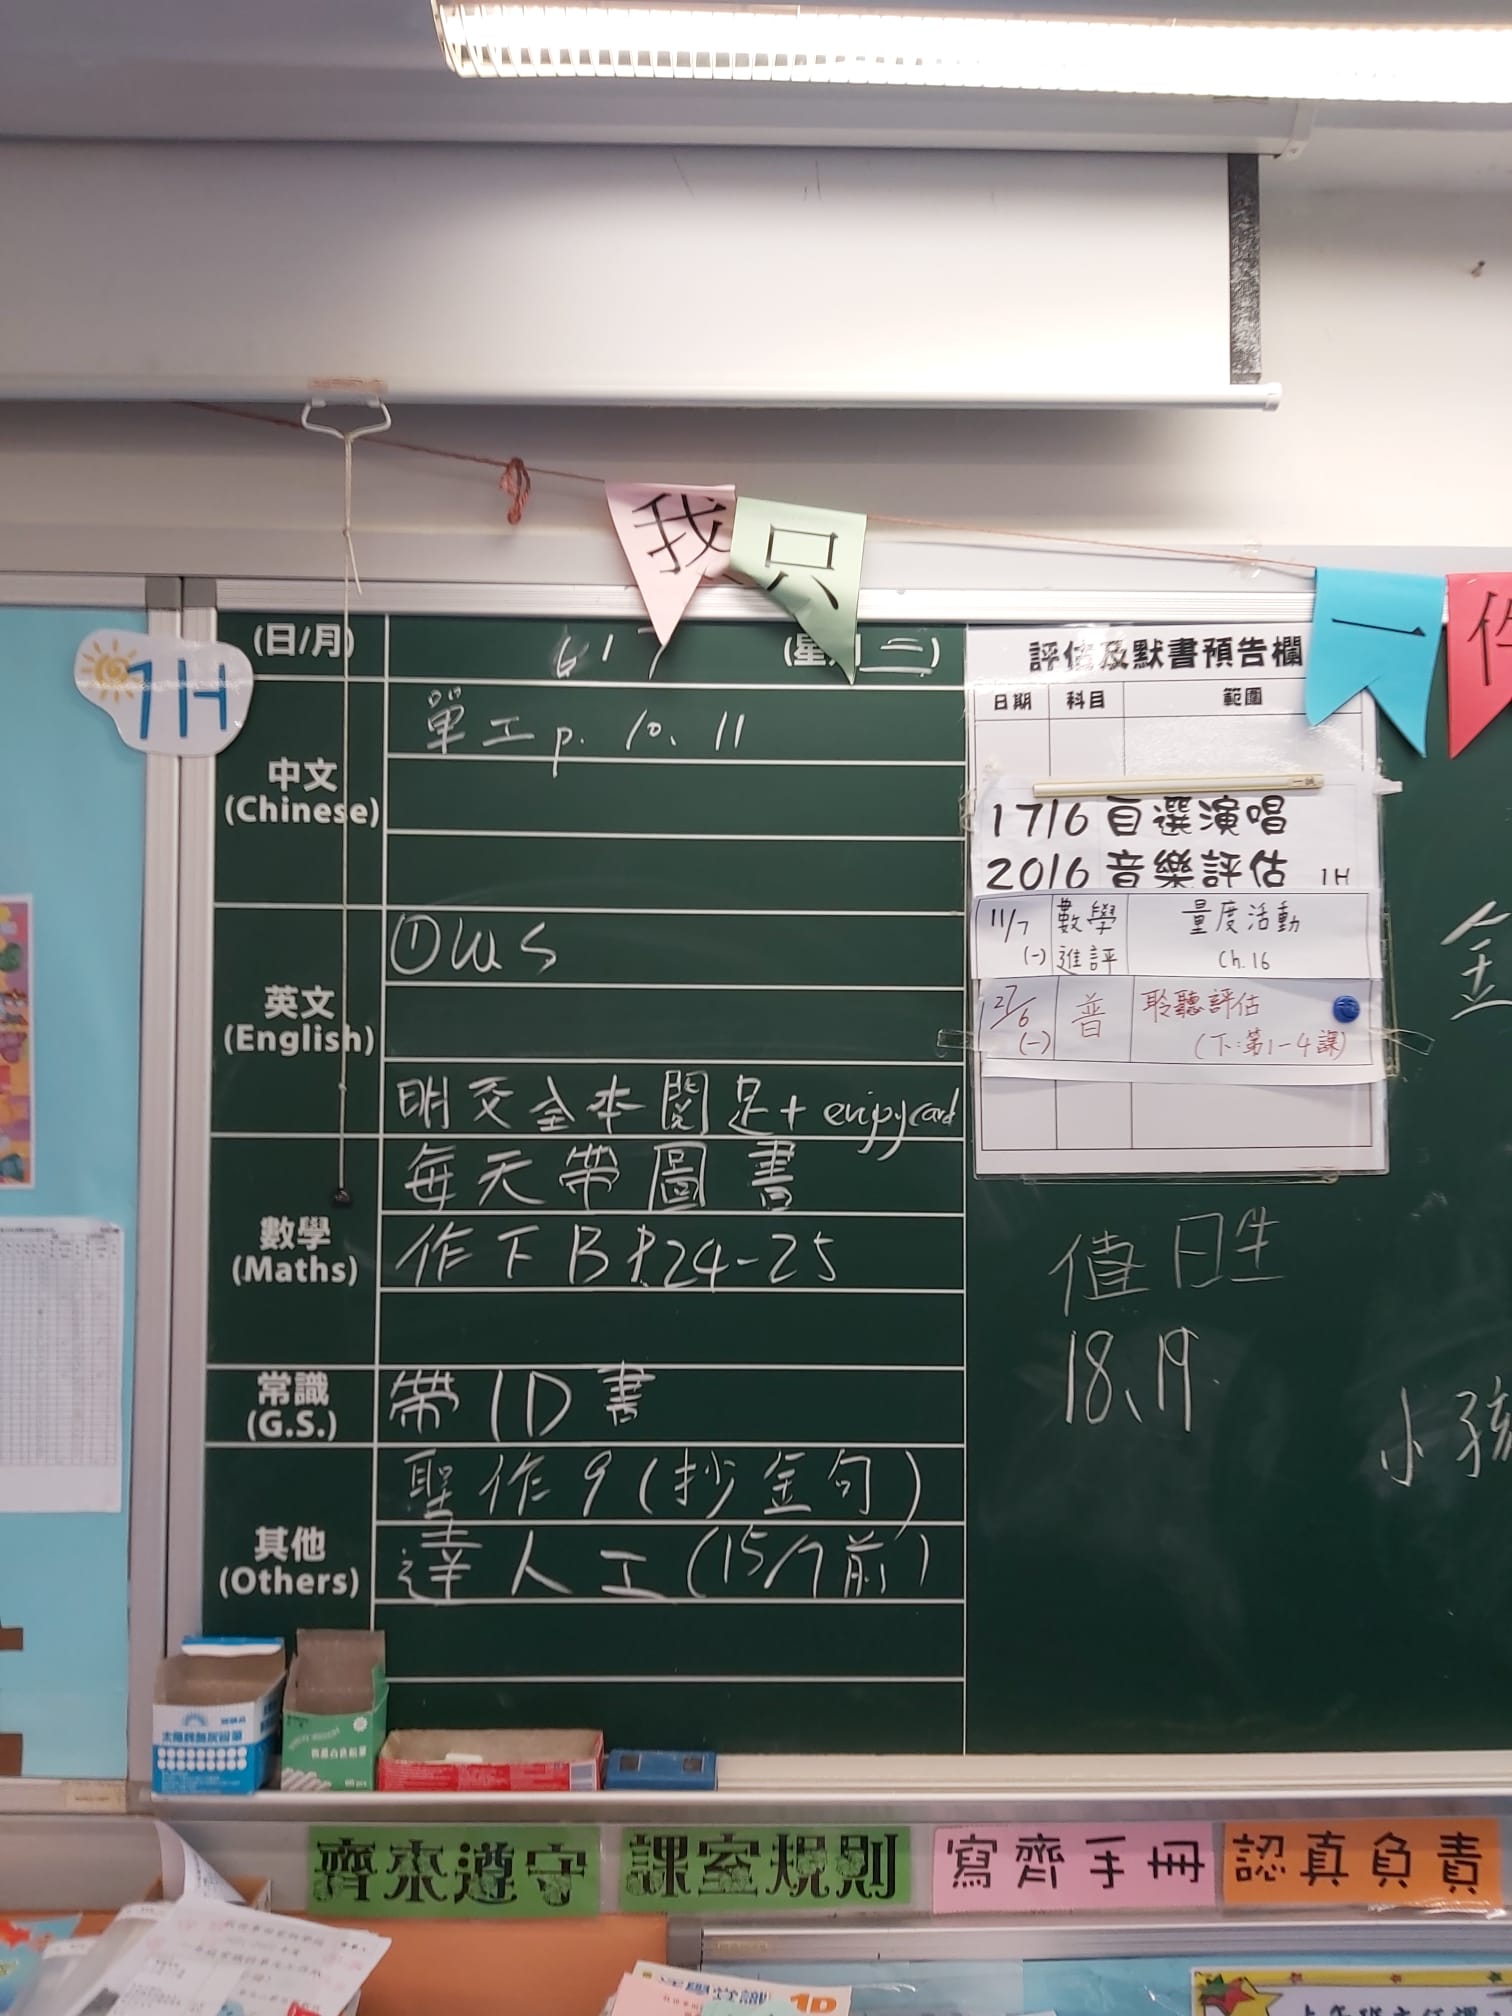 我只一件
1H
(日/月) 6 / 7 (星期三)
中文
(Chinese)
單工p. 10、11
英文
(English)
①WS
明交全本閱足+enjoy card
每天帶圖書
數學
(Maths)
作下B P.24-25
常識
(G.S.)
帶1D書
其他
(Others)
聖作9(抄金句)
達人工(15/7前)
評估及默書預告欄
日期 科目 範圍
17/6 自選演唱
20/6 音樂評估 1H
11/7 (一) 數學進評 量度活動 Ch.16
27/6 (一) 普 聆聽評估 (下:第1-4課)
值日生
18、19
金
小孩
齊來遵守 課室規則 寫齊手冊 認真負責
1D